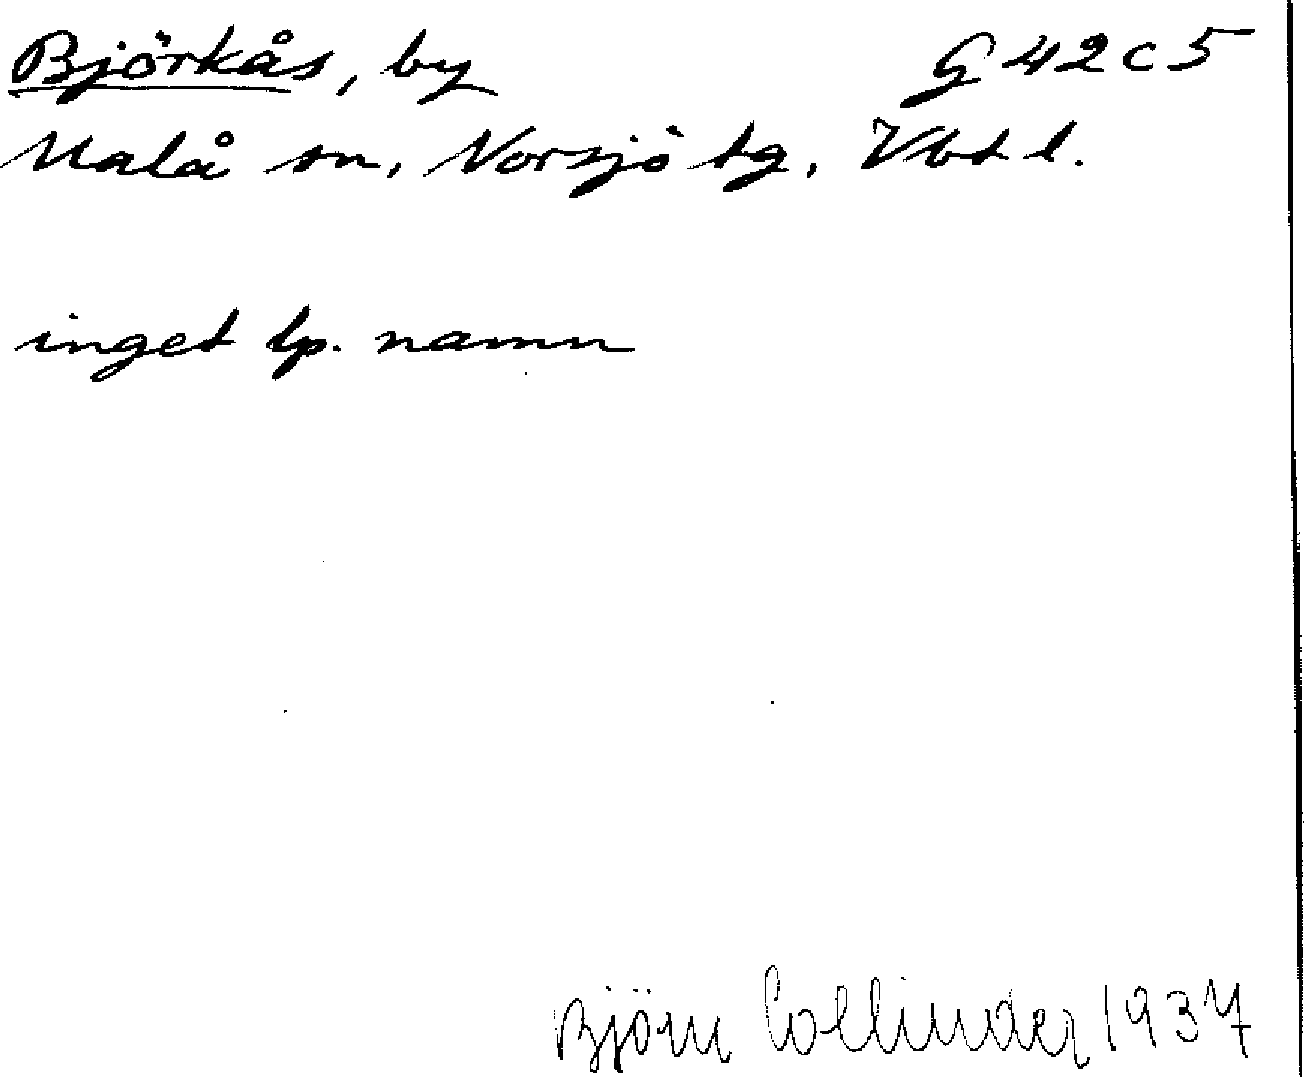 Björkås, by G 42 c 5
Malå sn, Norsjö tg, Vbt l.
inget lp. namn
Björn Collinder 1937